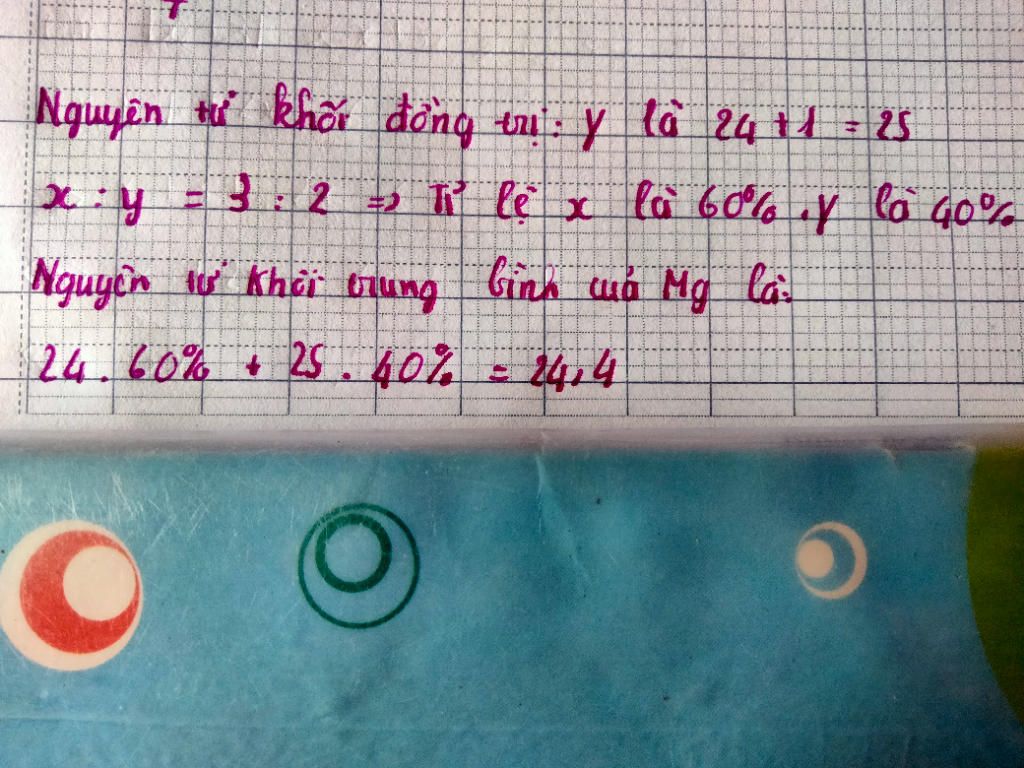 Nguyên tử khối đồng trị: Y là 24 + 1 = 25
x : y = 3 : 2 => Tỉ lệ x là 60%. Y là 40%
Nguyên tử khối trung bình của Mg là:
24 . 60% + 25 . 40% = 24,4